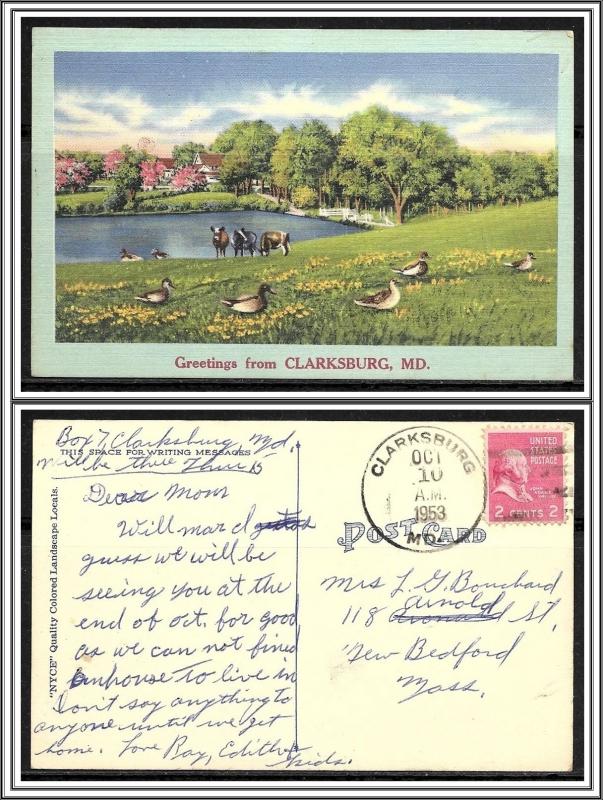 Greetings from CLARKSBURG, MD.
Box 7, Clarksburg, Md.
THIS SPACE FOR WRITING MESSAGES
will be there Thur
Dear Mom
Will mard
guess we will be
seeing you at the
end of oct. for good
as we can not fined
house to live in
Don't say anything to
anyone until we get
home. Love Ray, Edith &
Kids.
"NYCE" Quality Colored Landscape Locals.
CLARKSBURG
OCT
10
A.M.
1953
MD.
UNITED
STATES
POSTAGE
JOHN ADAMS
2 CENTS 2
POST CARD
Mrs L. G. Bouchard
Arnold
118 St,
New Bedford
Mass.